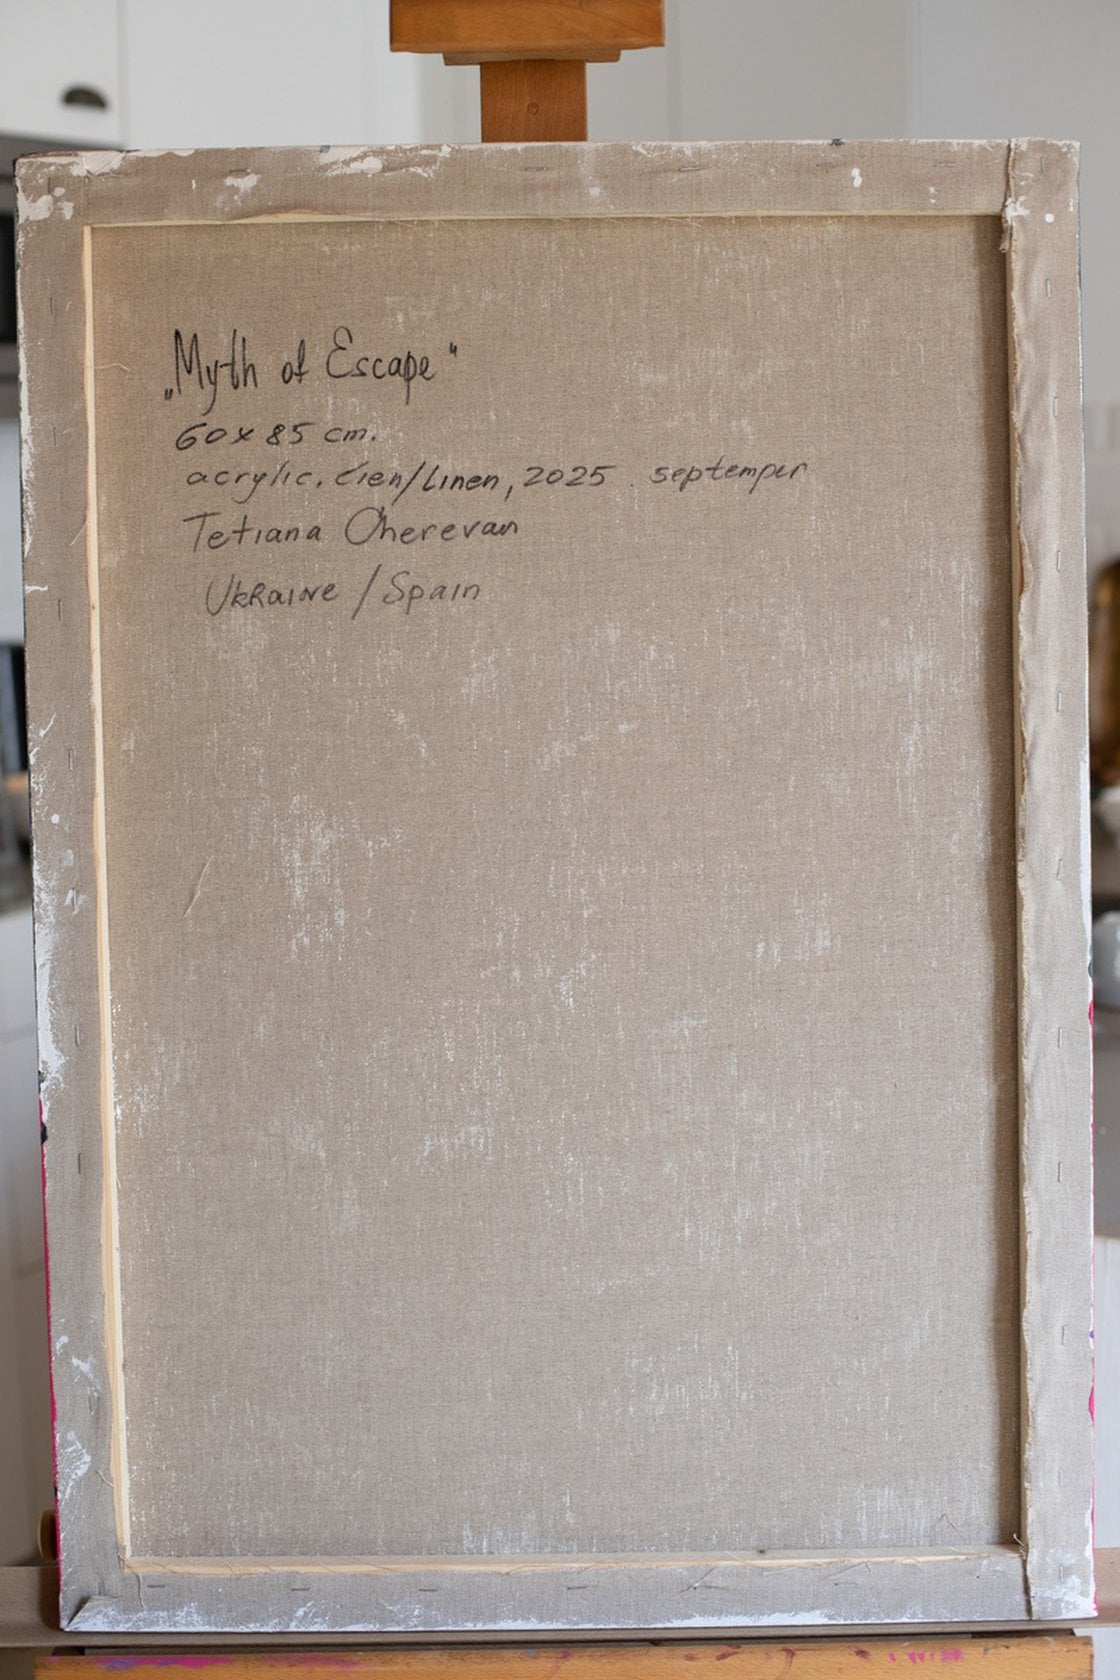 „Myth of Escape“
60x85 cm.
acrylic, lien/linen, 2025. septemper
Tetiana Cherevan
Ukraine / Spain